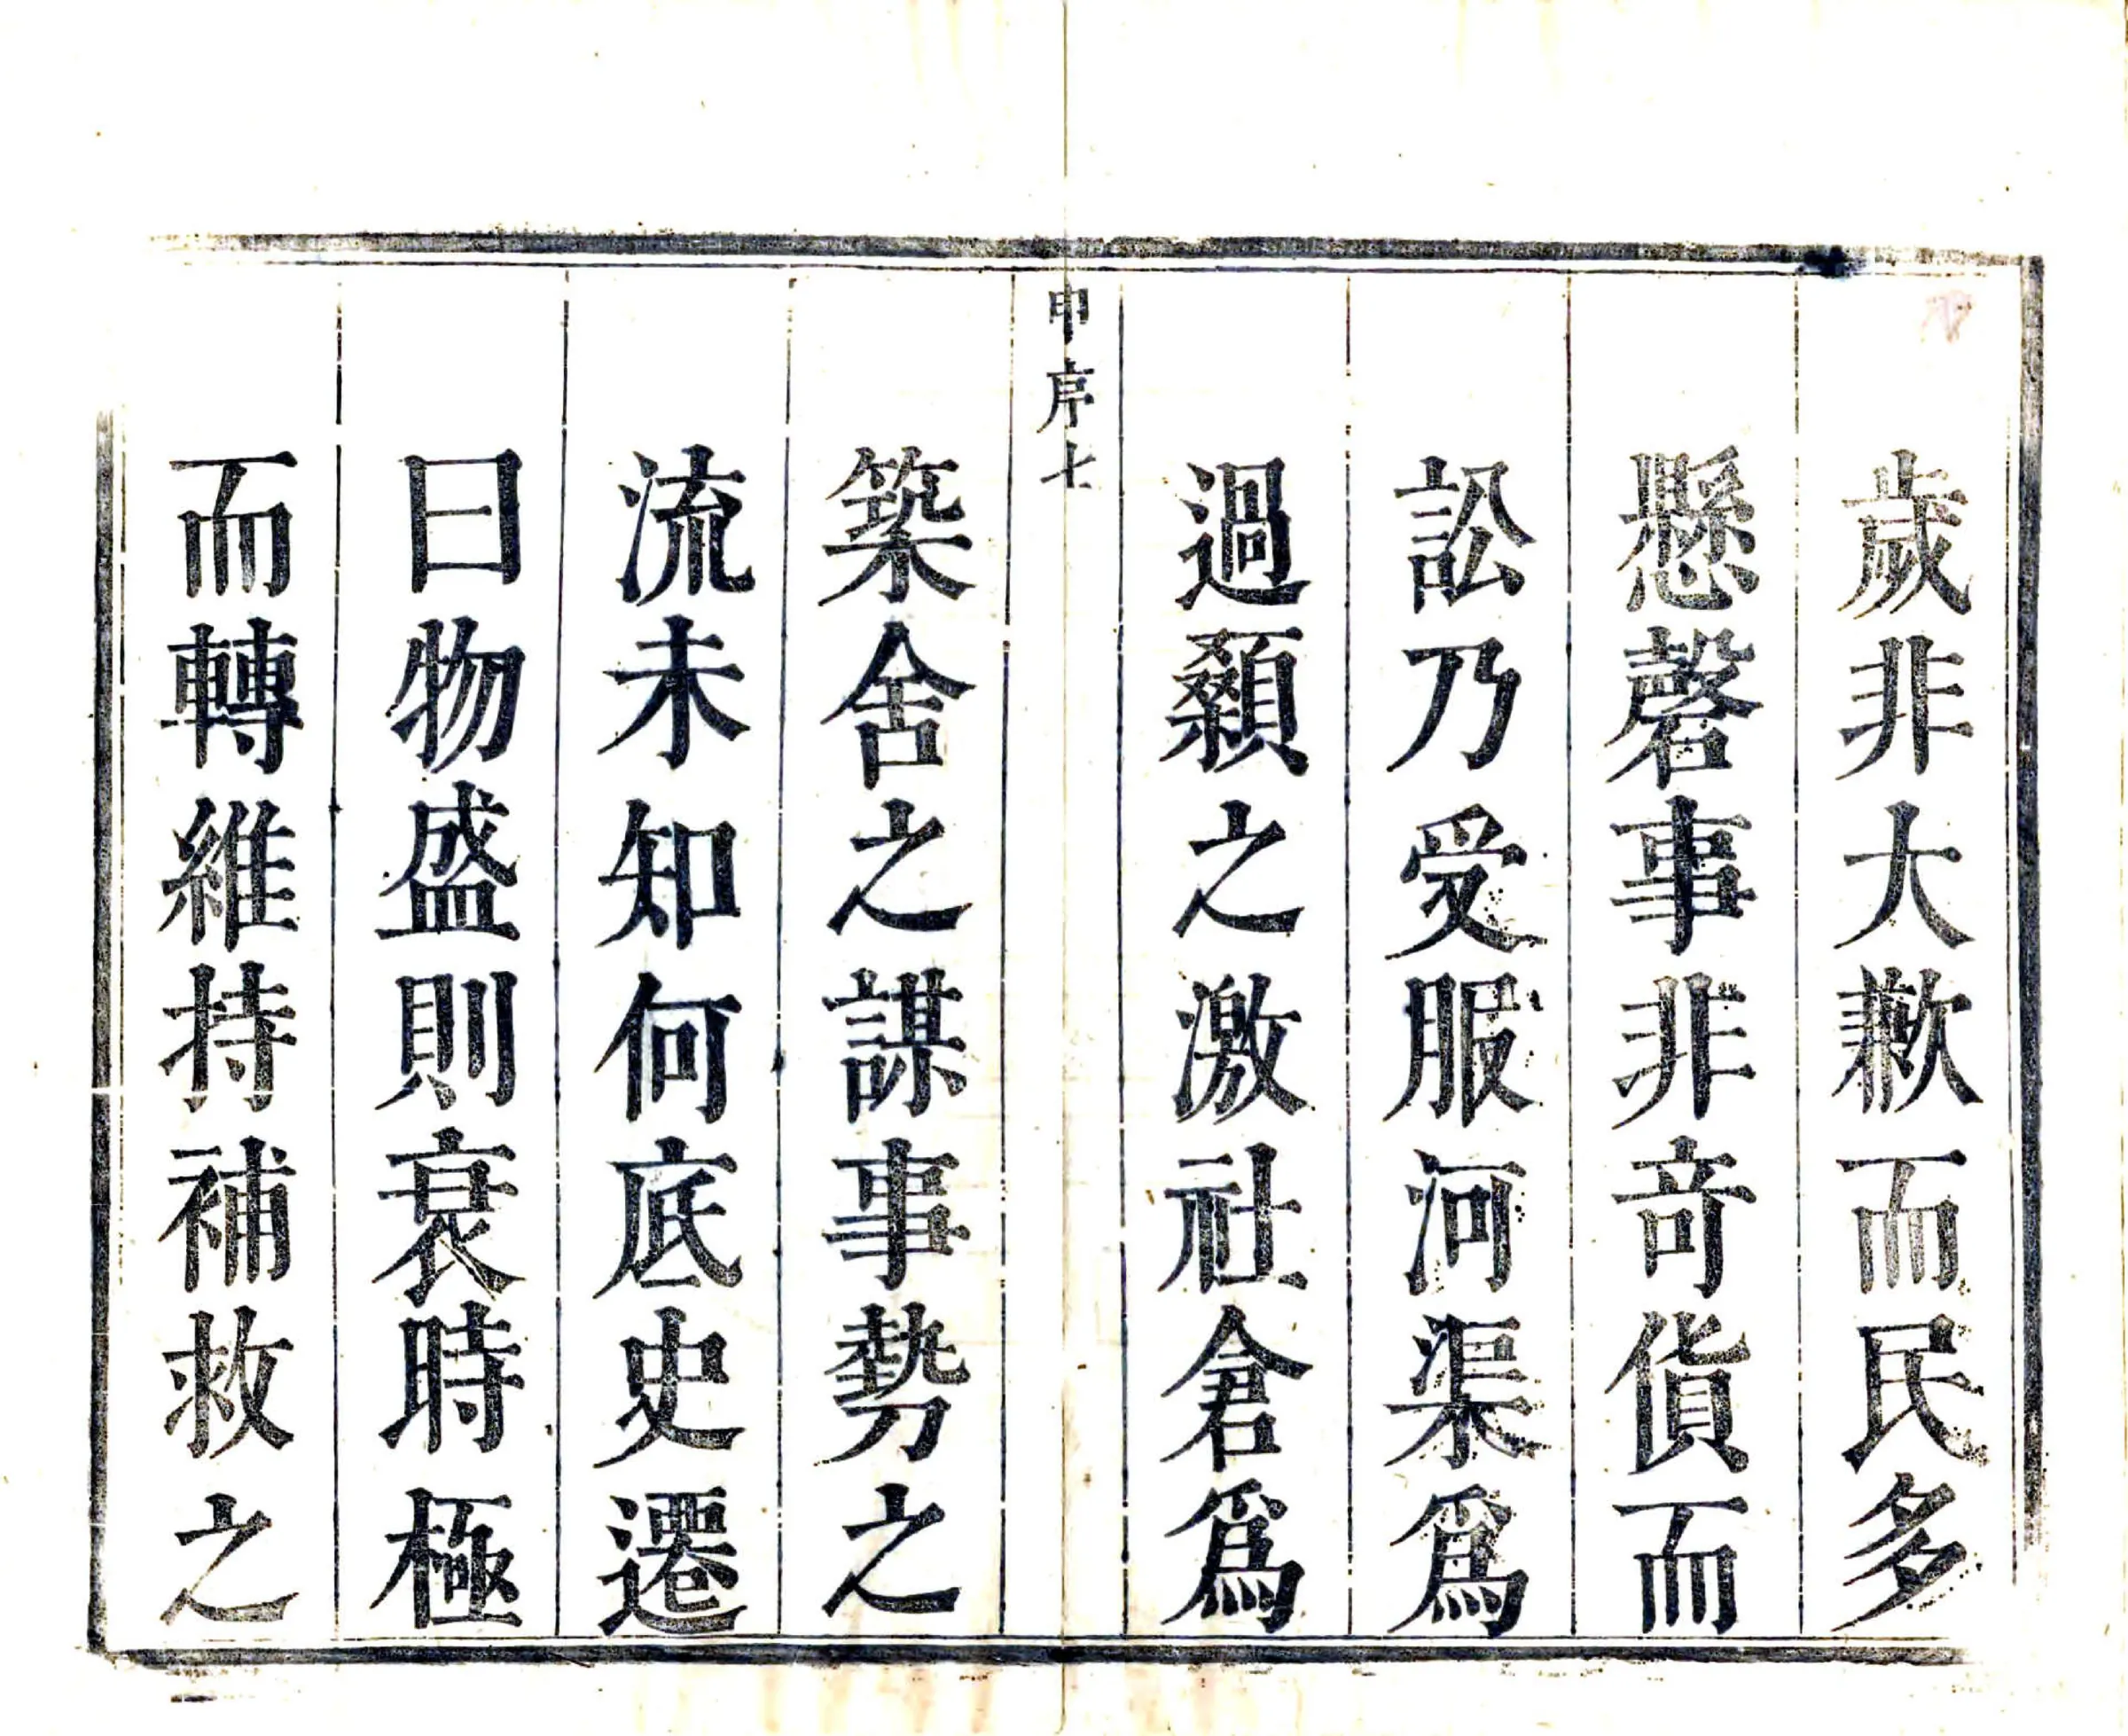 歲非大歉而民多
懸磬事非奇貨而
訟乃受服河渠爲
過顙之激社倉爲
申序七
築舍之謀事勢之
流未知何底史遷
曰物盛則衰時極
而轉維持補救之